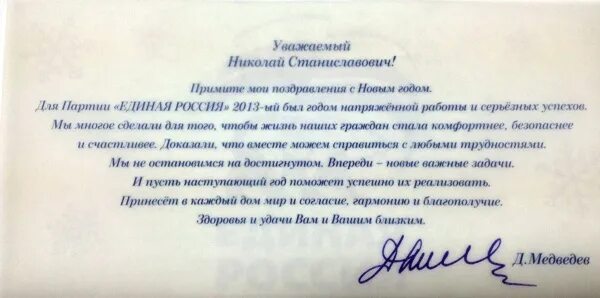 Уважаемый
Николай Станиславович!
Примите мои поздравления с Новым годом.
Для Партии «ЕДИНАЯ РОССИЯ» 2013-ый был годом напряжённой работы и серьёзных успехов.
Мы многое сделали для того, чтобы жизнь наших граждан стала комфортнее, безопаснее
и счастливее. Доказали, что вместе можем справиться с любыми трудностями.
Мы не остановимся на достигнутом. Впереди – новые важные задачи.
И пусть наступающий год поможет успешно их реализовать.
Принесёт в каждый дом мир и согласие, гармонию и благополучие.
Здоровья и удачи Вам и Вашим близким.
Д.Медведев